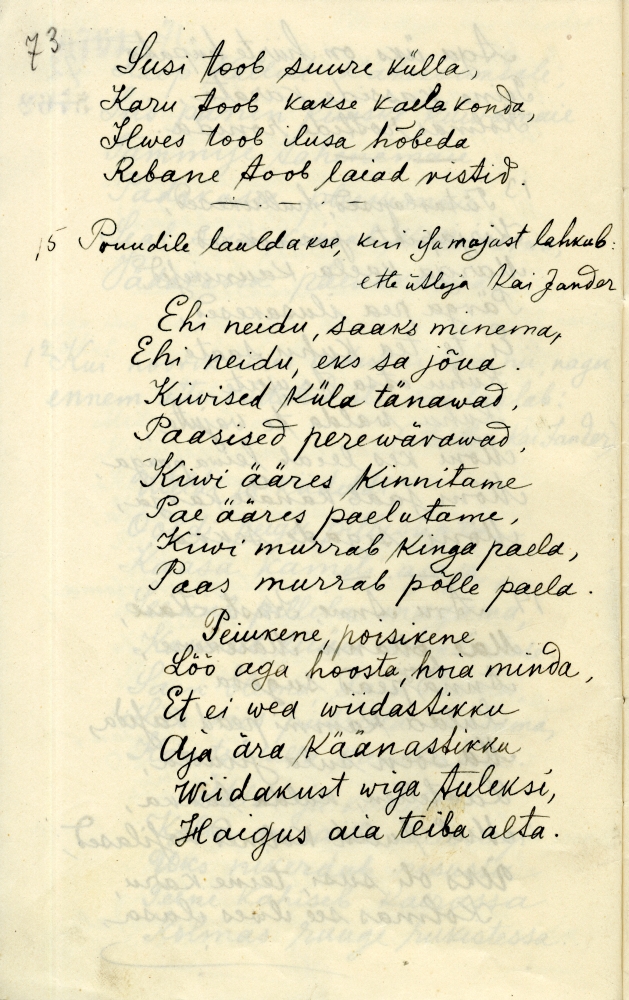 73
Susi toob suure külla,
Karu toob kakse kaela konda,
Ilwes toob ilusa hõbeda
Rebane toob laiad ristid.
15 Pruudile lauldakse, kui isamajast lahkub:
ette ütleja Kai Jander
Ehi neidu, saaks minema,
Ehi neidu, eks sa jõua.
Kiwised küla tänawad,
Paasised perewärawad,
Kiwi ääres kinnitame
Pae ääres paelutame,
Kiwi murrab kinga paela,
Paas murrab põlle paela.
Peiukene, poisikene
Löö aga hoosta, hoia minda,
Et ei wea wiidastikku
Aja ära käänastikku
Wiidakust wiga tuleksi,
Haigus aia teiba alta.